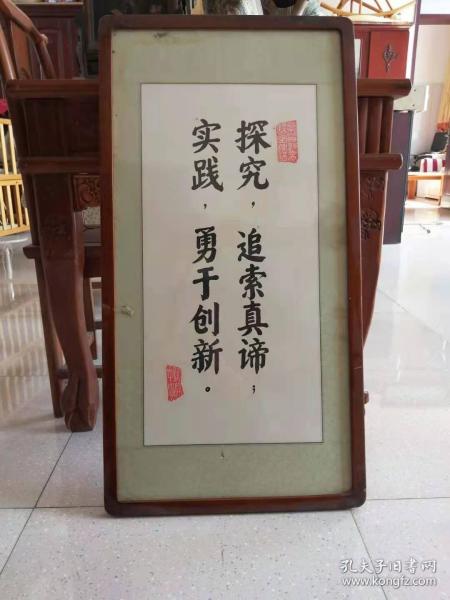 探究，追索真谛；
实践，勇于创新。
孔夫子旧书网
www.kongfz.com